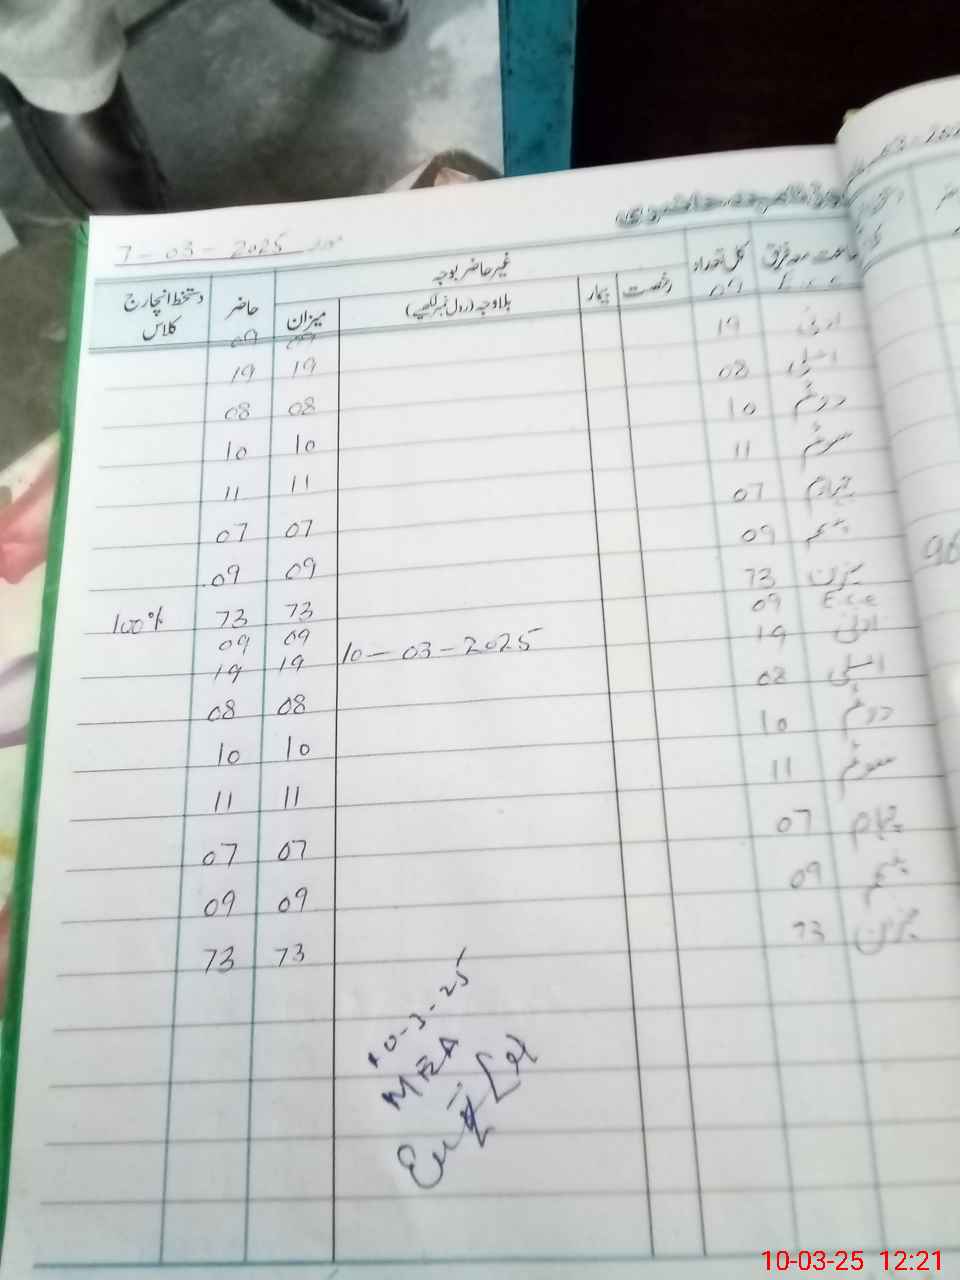 مورخہ 2025 - 03 - 7
جماعت معہ فریق کل تعداد غیر حاضر بوجہ حاضر دستخط انچارج کلاس
رخصت بیمار بلاوجہ (رول نمبر لکھیے) میزان
E.C.E 09 09 09
ادنیٰ 19 19 19
اعلیٰ 08 08 08
دوئم 10 10 10
سوئم 11 11 11
چہارم 07 07 07
پنجم 09 09 09
میزان 73 73 73 100%
10 - 03 - 2025
E.C.E 09 09 09
ادنیٰ 19 19 19
اعلیٰ 08 08 08
دوئم 10 10 10
سوئم 11 11 11
چہارم 07 07 07
پنجم 09 09 09
میزان 73 73 73
10-3-25
MEA
96
10-03-25 12:21